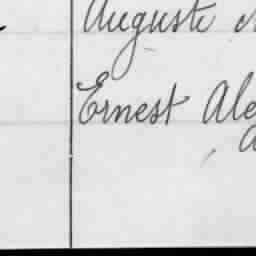 Auguste
Ernest Ale